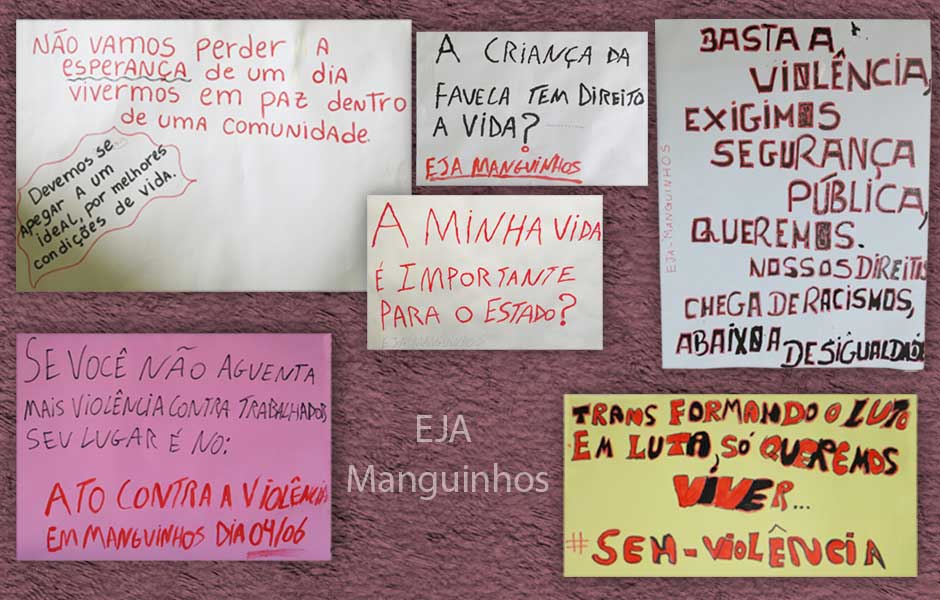 NÃO VAMOS PERDER A
ESPERANÇA DE UM DIA
VIVERMOS EM PAZ DENTRO
DE UMA COMUNIDADE.
Devemos se
apegar a um
ideal, por melhores
condições de vida.
A CRIANÇA DA
FAVELA TEM DIREITO
A VIDA?
EJA MANGUINHOS
BASTA A
VIOLÊNCIA,
EXIGIMOS
SEGURANÇA
PÚBLICA,
QUEREMOS.
NOSSOS DIREITOS
CHEGA DE RACISMOS,
ABAIXO A DESIGUALDADE
EJA-MANGUINHOS
A MINHA VIDA
É IMPORTANTE
PARA O ESTADO?
EJA MANGUINHOS
SE VOCÊ NÃO AGUENTA
MAIS VIOLÊNCIA CONTRA TRABALHADOR,
SEU LUGAR É NO:
ATO CONTRA A VIOLÊNCIA
EM MANGUINHOS DIA 04/06
EJA
Manguinhos
TRANSFORMANDO O LUTO
EM LUTA, SÓ QUEREMOS
VIVER...
#SEM-VIOLÊNCIA